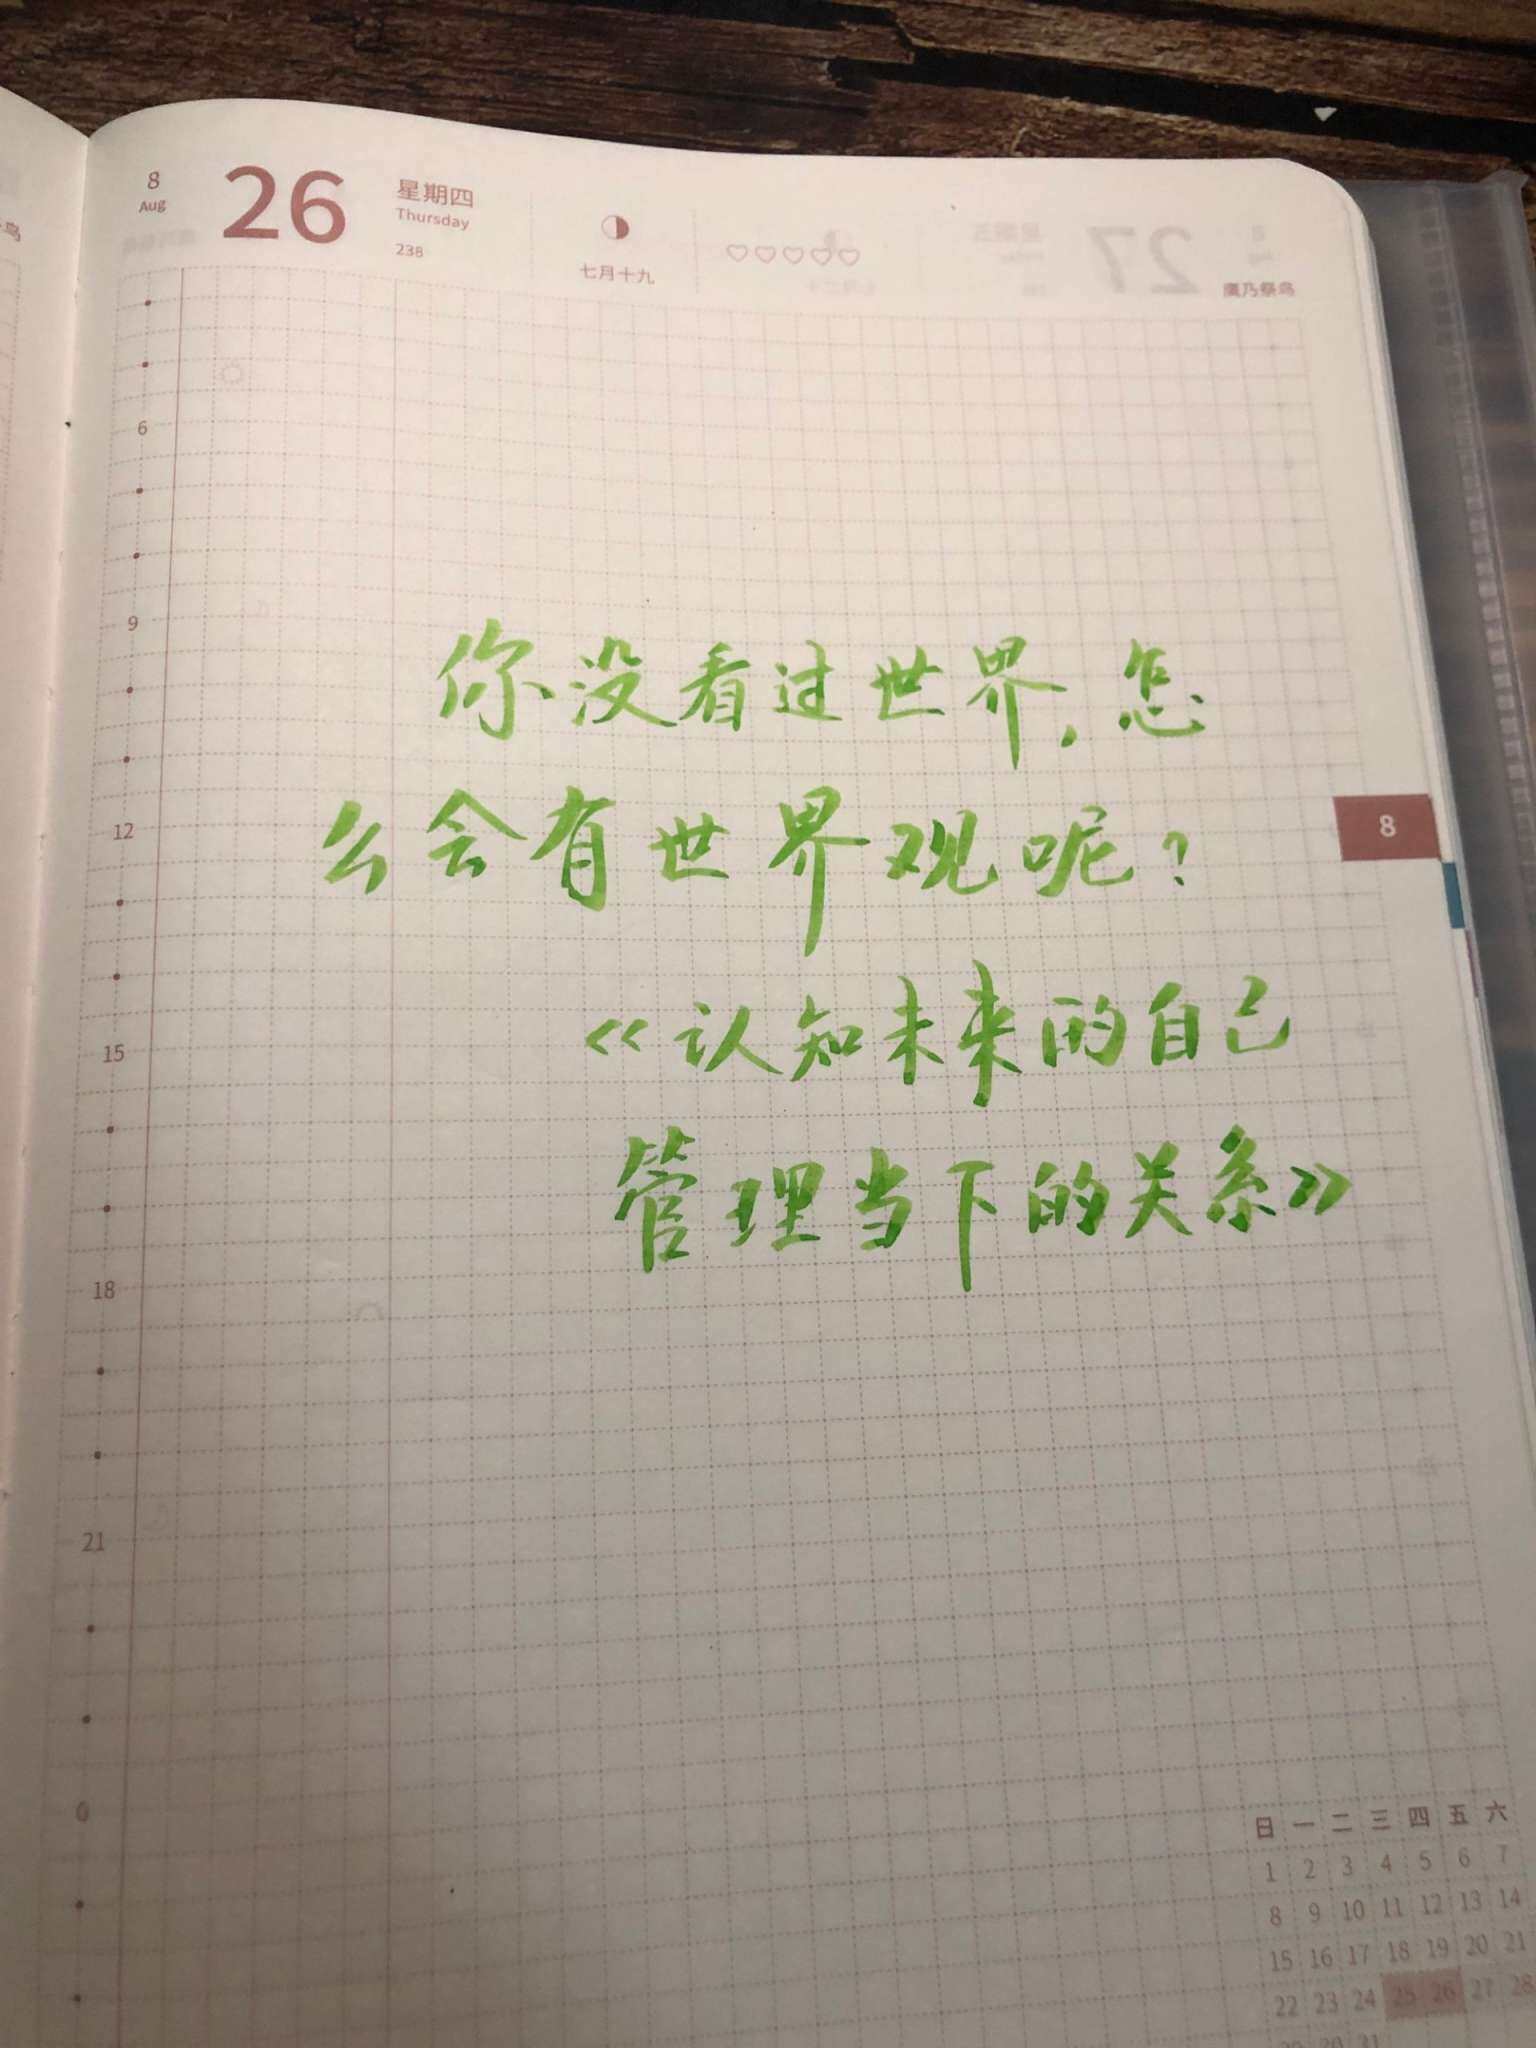 8
Aug
26
星期四
Thursday
238
七月十九
鹰乃祭鸟
6
9
12
15
18
21
0
你没看过世界，怎
么会有世界观呢？
《认知未来的自己
管理当下的关系》
8
日 一 二 三 四 五 六
1 2 3 4 5 6 7
8 9 10 11 12 13 14
15 16 17 18 19 20 21
22 23 24 25 26 27 28
29 30 31